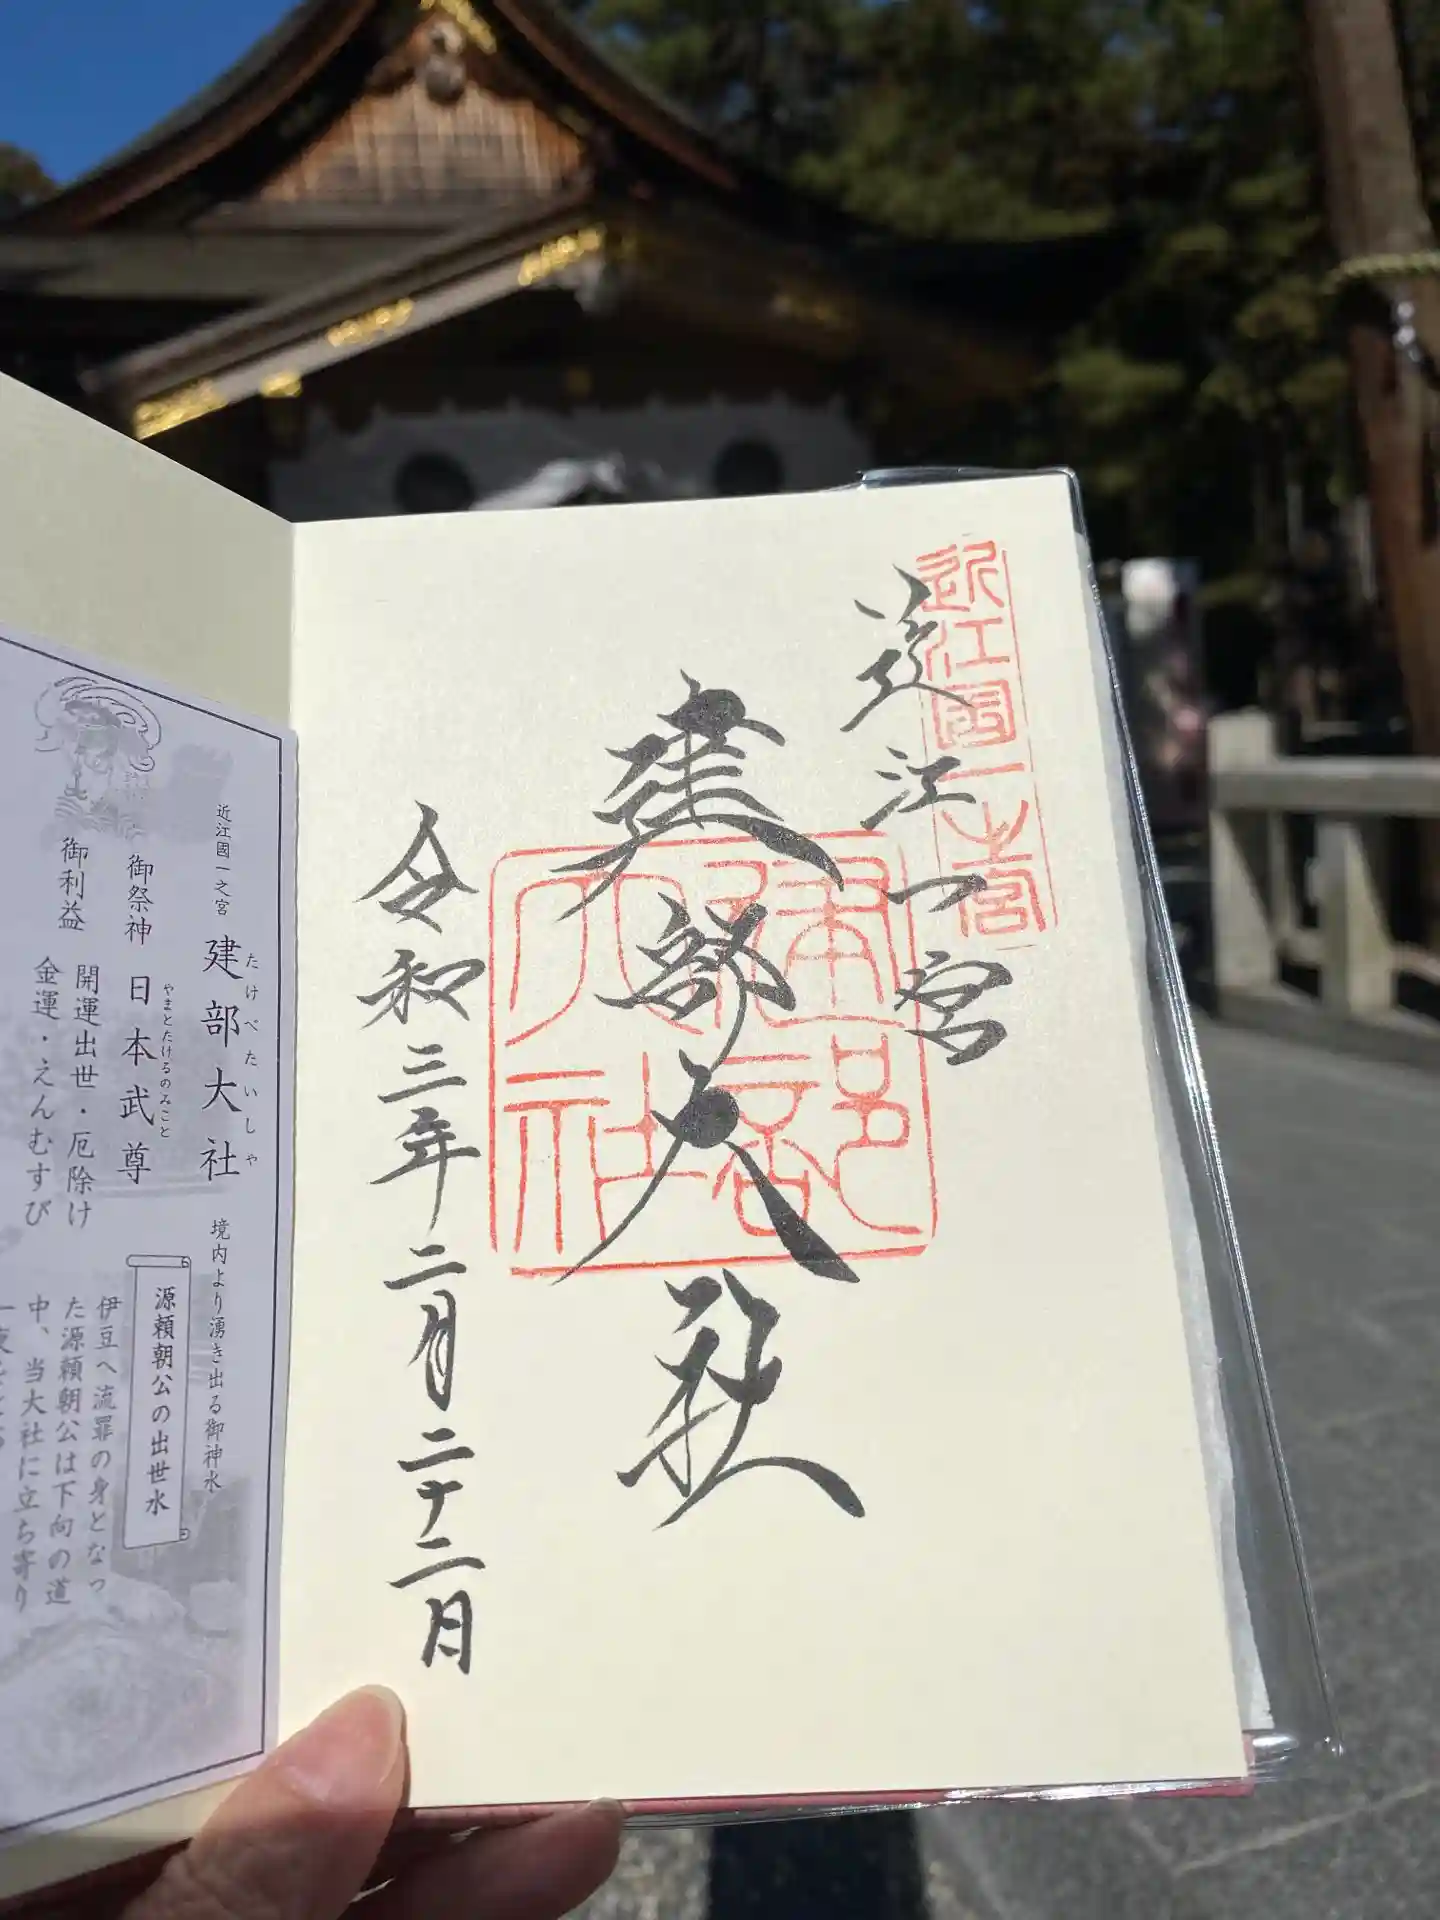 近江國一之宮
近江一宮
建部大社
建部大社
令和三年二月二十二日
近江國一之宮
建部大社
たけべたいしゃ
御祭神 日本武尊
やまとたけるのみこと
御利益 開運出世・厄除け
金運・えんむすび
境内より湧き出る御神水
源頼朝公の出世水
伊豆へ流罪の身となっ
た源頼朝公は下向の道
中、当大社に立ち寄り